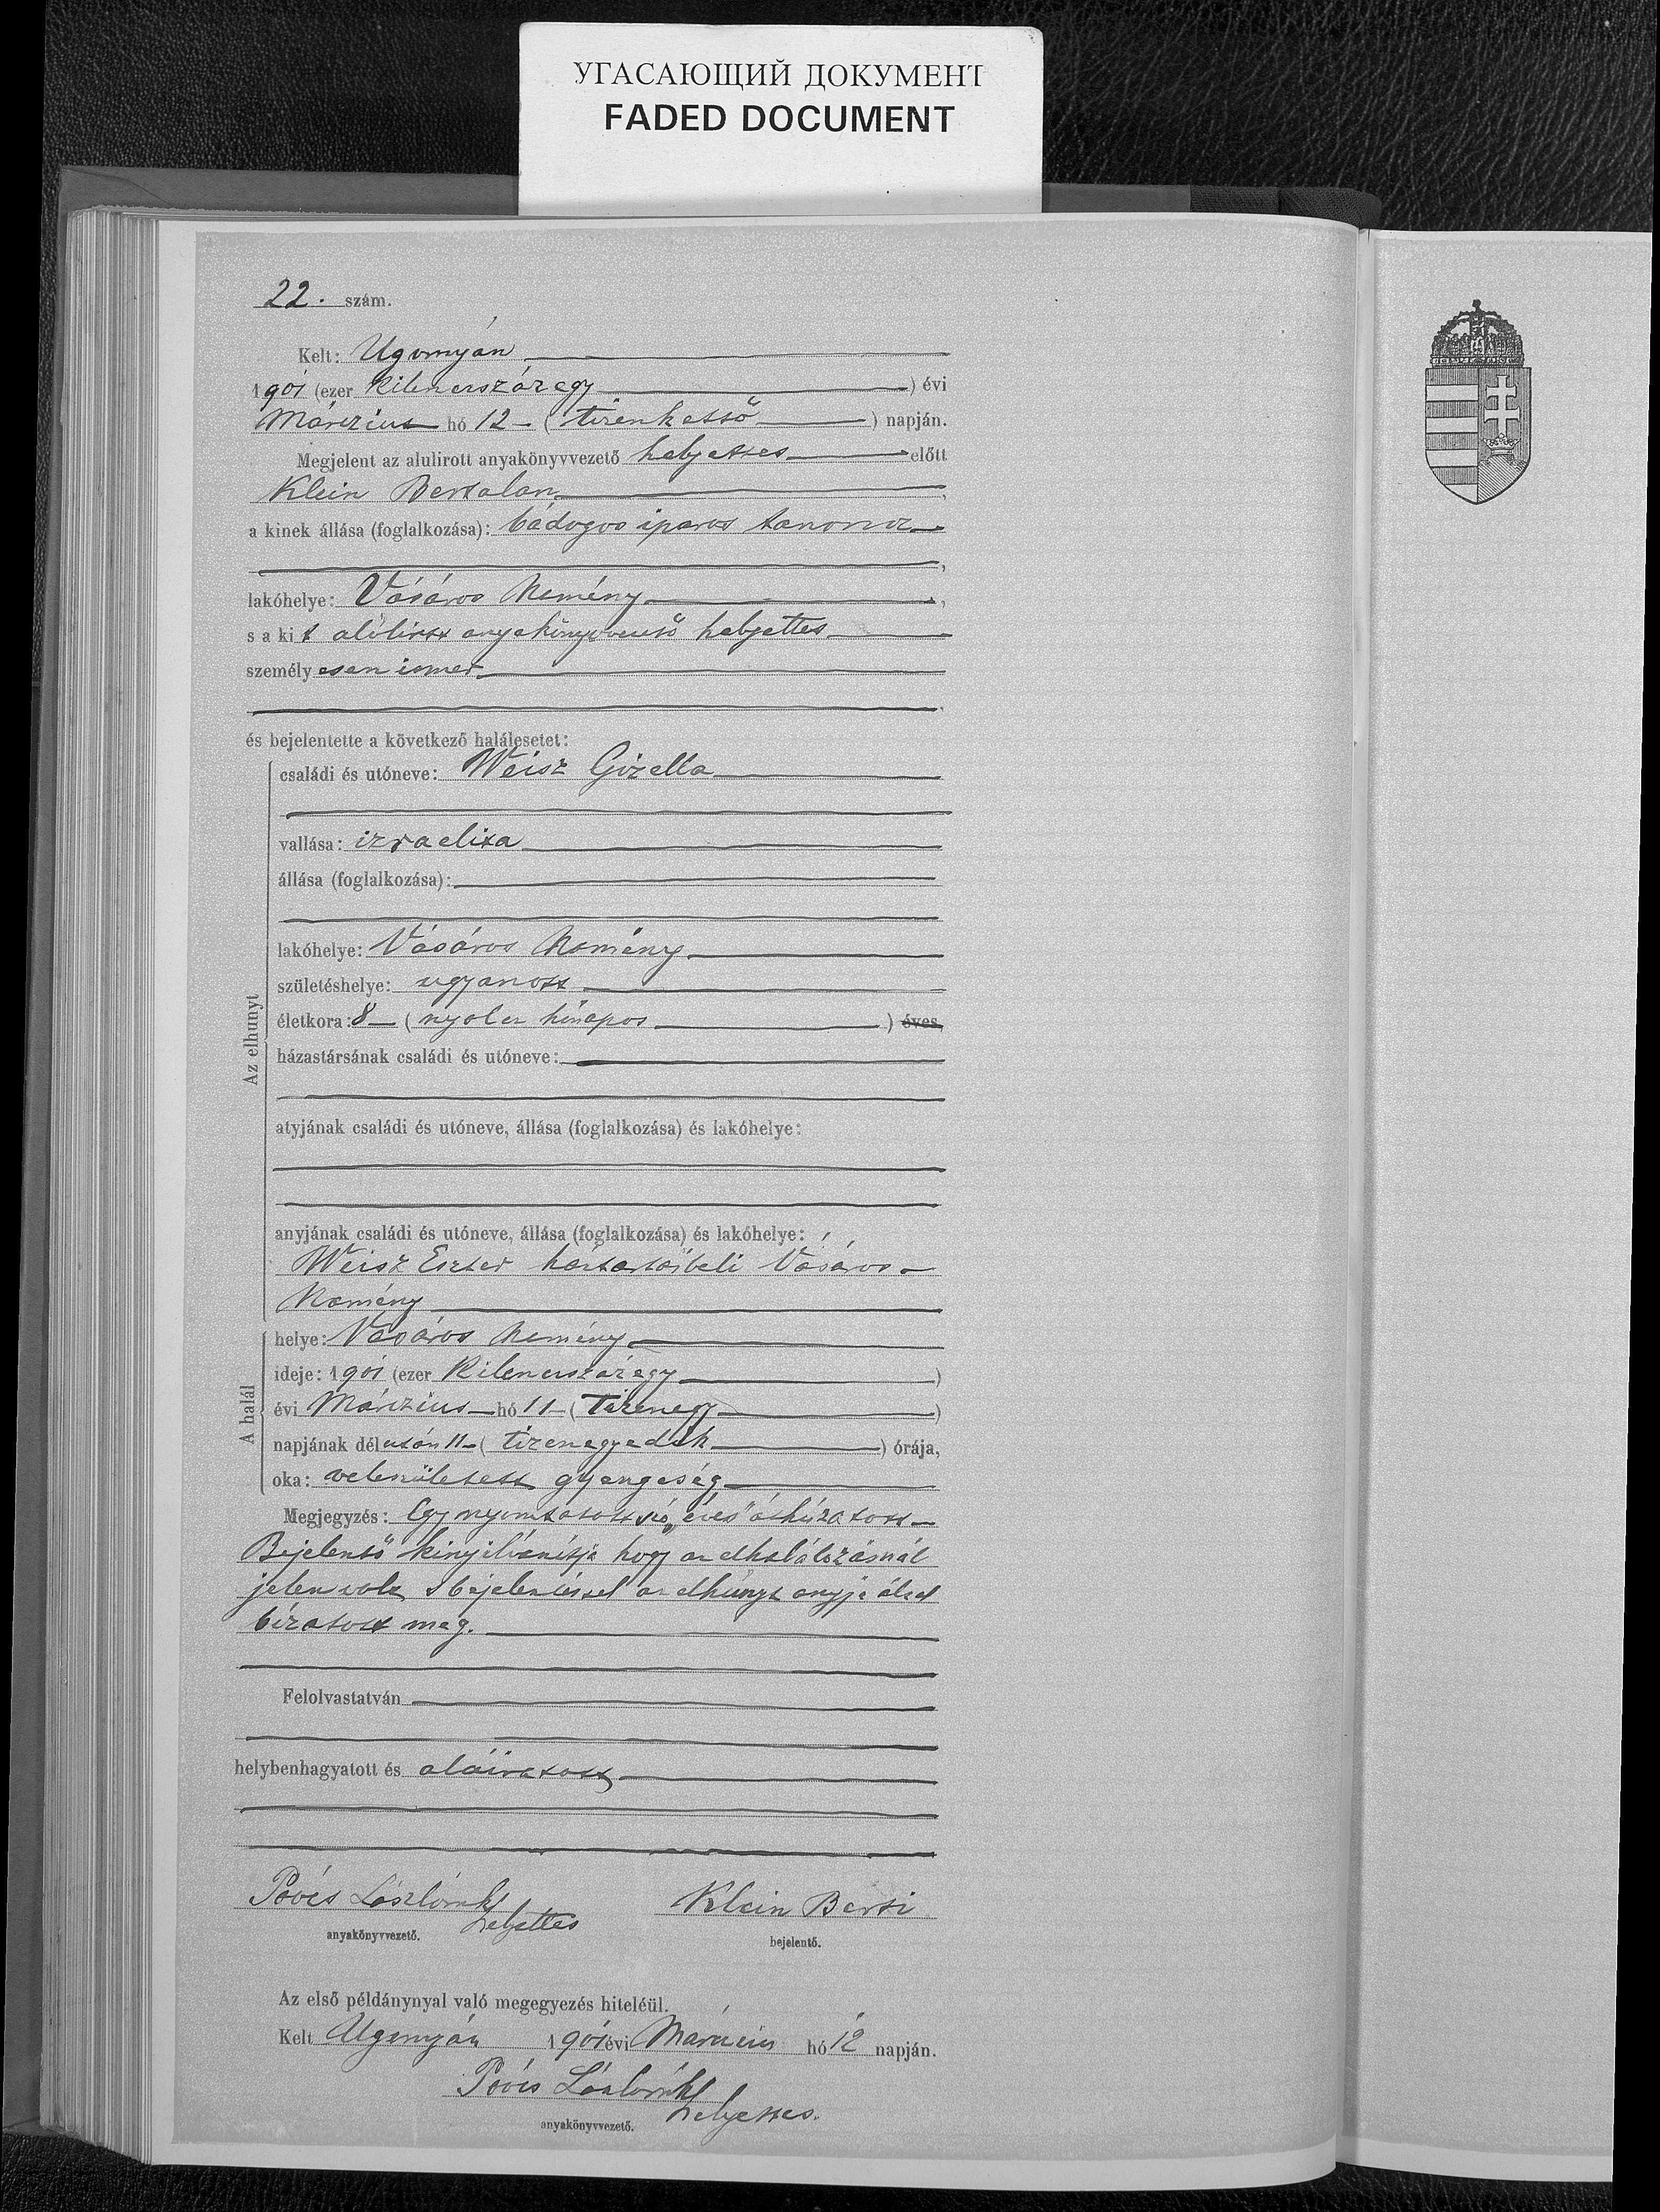 УГАСАЮЩИЙ ДОКУМЕНТ
FADED DOCUMENT
22. szám.
Kelt: Ugornyán
1901 (ezer kilenczszázegy ) évi
Márczius hó 12 – ( tizenkettő ) napján.
Megjelent az alulirott anyakönyvvezető helyettes előtt
Klein Bertalan,
a kinek állása (foglalkozása): bádogos iparos tanoncz
lakóhelye: Vásáros Namény,
s a kit alólírott anyakönyvvezető helyettes
személyesen ismer
és bejelentette a következő halálesetet:
Az elhunyt
családi és utóneve: Weisz Gizella
vallása: izraelita
állása (foglalkozása):
lakóhelye: Vásáros Namény
születéshelye: ugyanott
életkora: 8 – ( nyolcz hónapos ) éves,
házastársának családi és utóneve:
atyjának családi és utóneve, állása (foglalkozása) és lakóhelye:
anyjának családi és utóneve, állása (foglalkozása) és lakóhelye:
Weisz Eszter háztartásbeli Vásáros-
Namény
A halál
helye: Vásáros Namény
ideje: 1901 (ezer kilenczszázegy )
évi Márczius hó 11 – ( Tizenegy )
napjának délután 11 – ( tizenegyedik ) órája,
oka: veleszületett gyengeség
Megjegyzés: Egy nyomtatott szó „éves" áthúzatott –
Bejelentő kinyilvánítja hogy az elhalálozásnál
jelen volt s bejelentéssel az elhúnyt anyja által
bízatott meg.
Felolvastatván
helybenhagyatott és aláíratott
László helyettes
Klein Berti
anyakönyvvezető.
bejelentő.
Az első példánynyal való megegyezés hiteléül.
Kelt Ugornyán 1901 évi Márczius hó 12 napján.
László helyettes.
anyakönyvvezető.